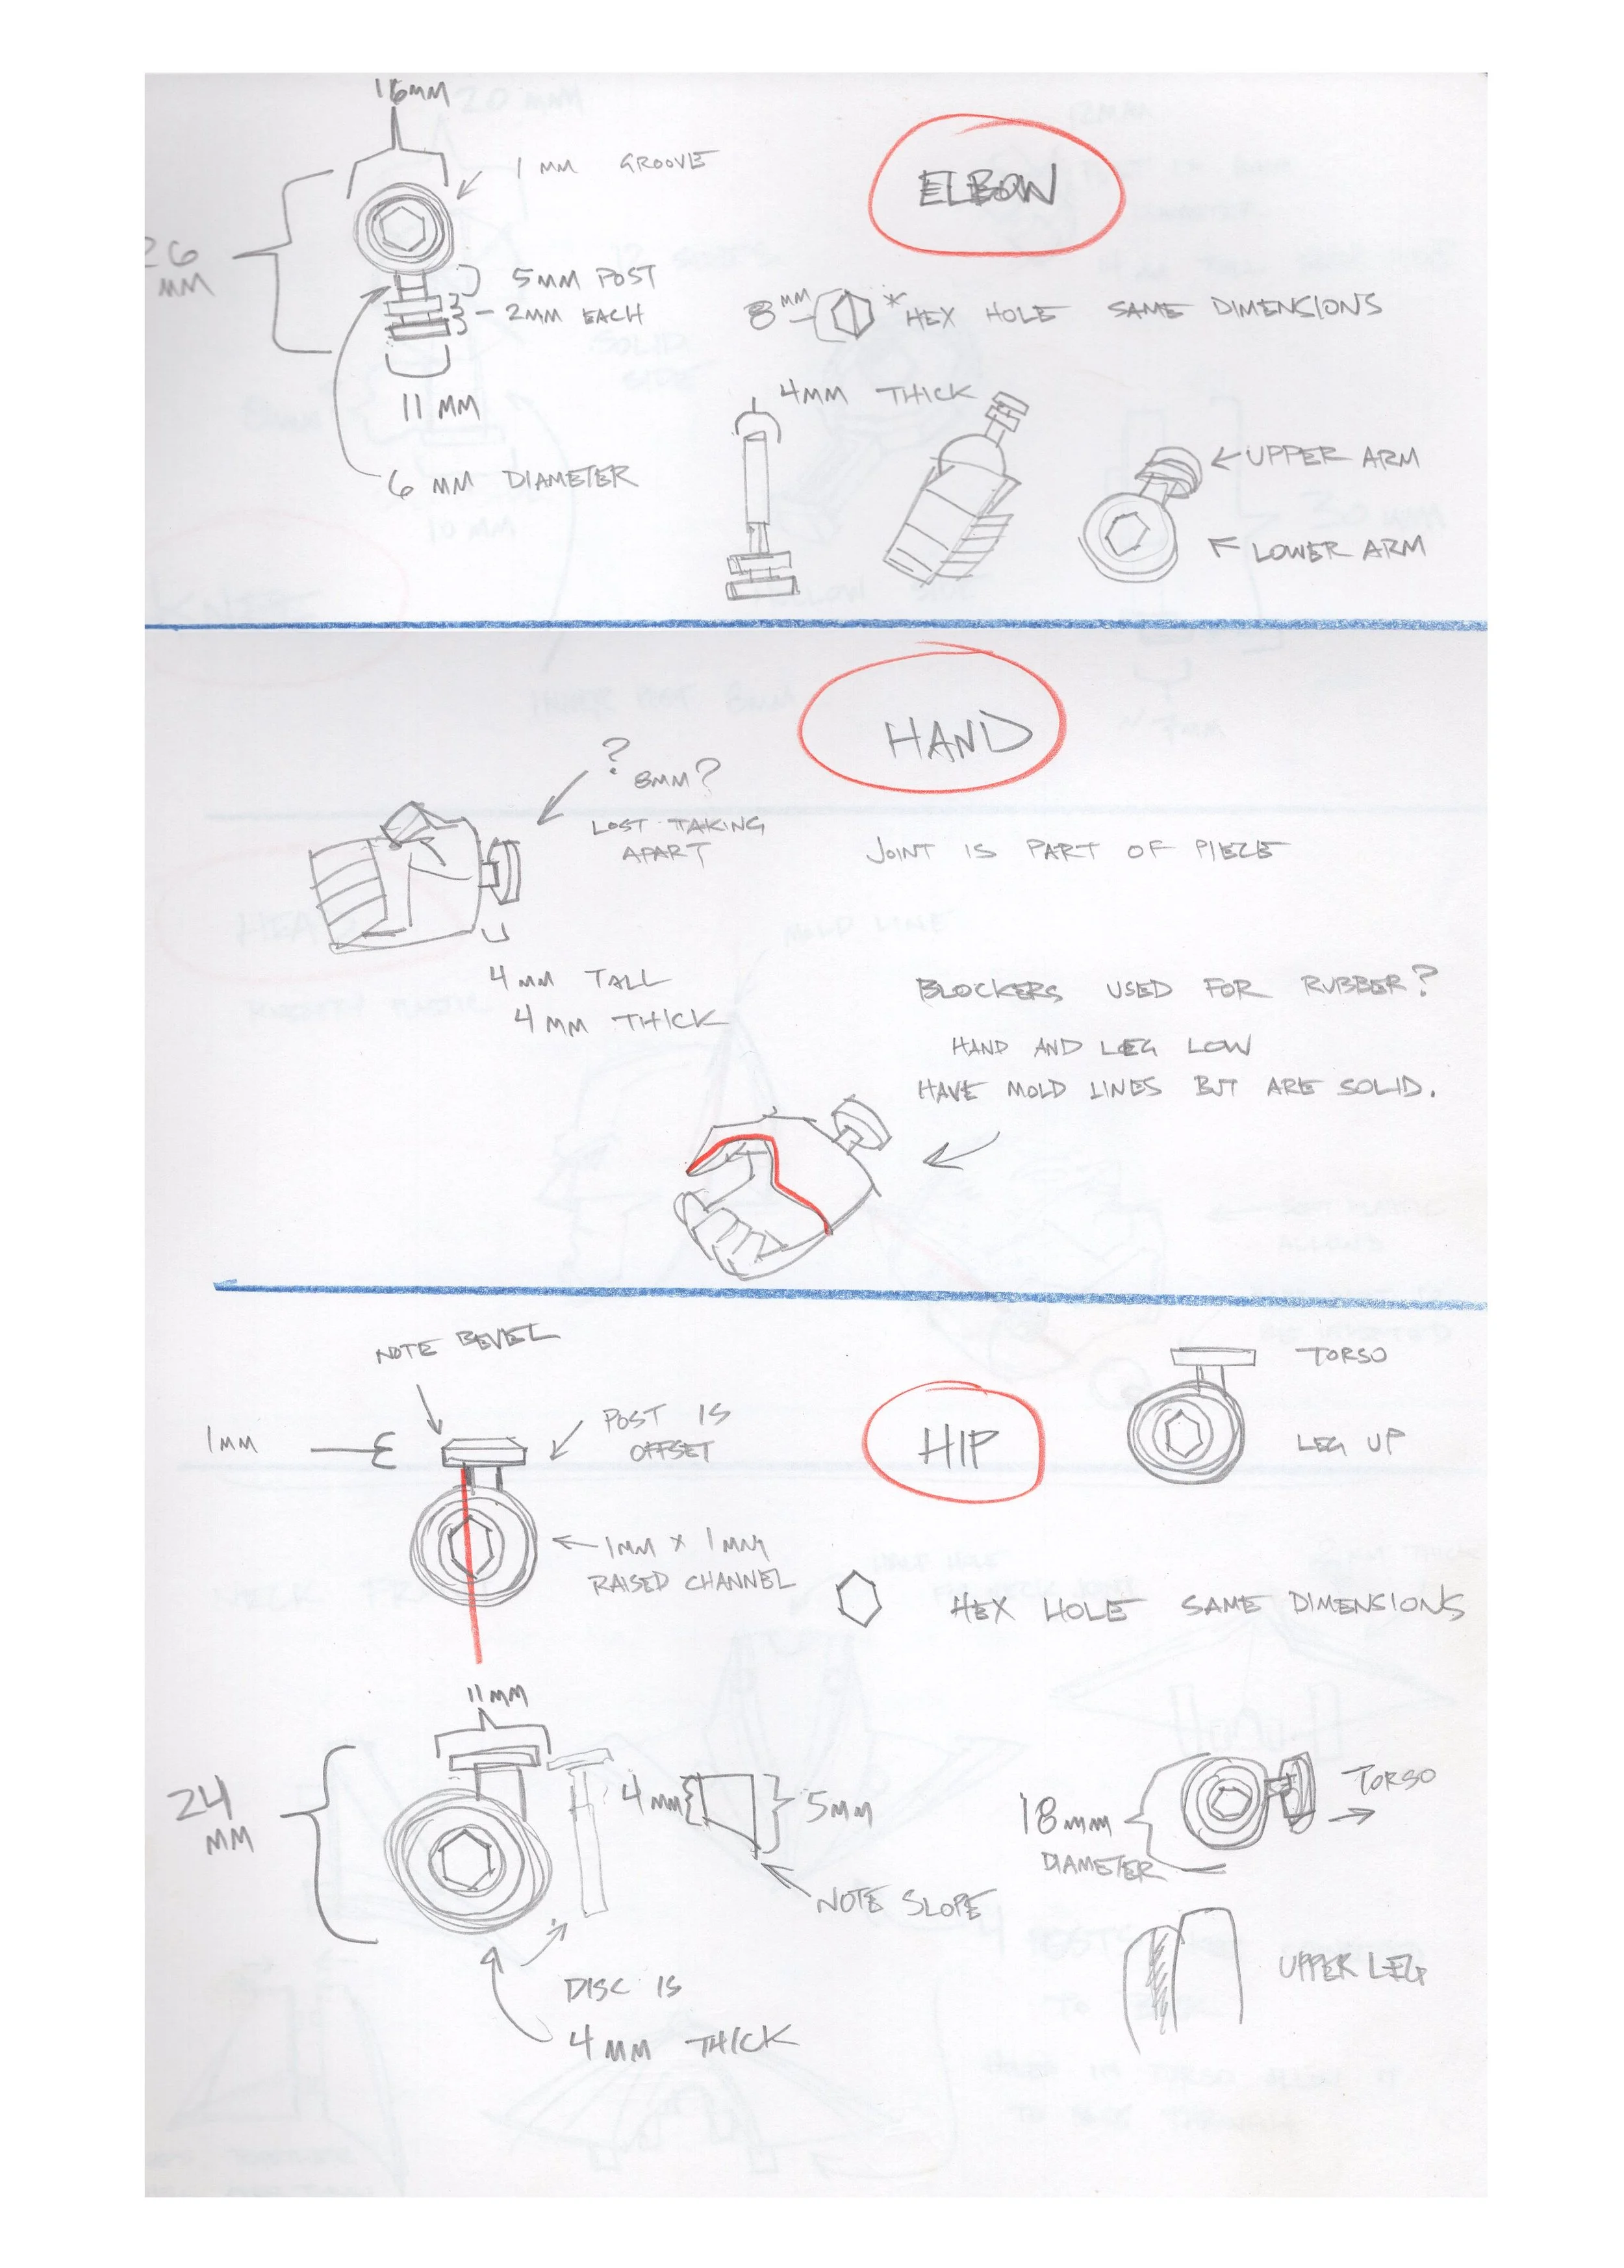 16MM
1 MM GROOVE
ELBOW
26
MM
5MM POST
2MM EACH
8MM
*HEX HOLE SAME DIMENSIONS
11 MM
4MM THICK
6 MM DIAMETER
UPPER ARM
LOWER ARM
HAND
?
8MM?
LOST TAKING
APART
JOINT IS PART OF PIECE
4 MM TALL
4 MM THICK
BLOCKERS USED FOR RUBBER?
HAND AND LEG LOW
HAVE MOLD LINES BUT ARE SOLID.
NOTE BEVEL
TORSO
1MM
POST IS
OFFSET
HIP
LEG UP
1MM X 1MM
RAISED CHANNEL
HEX HOLE SAME DIMENSIONS
11MM
24
MM
4MM
5MM
NOTE SLOPE
18MM
DIAMETER
TORSO
DISC IS
4MM THICK
UPPER LEG